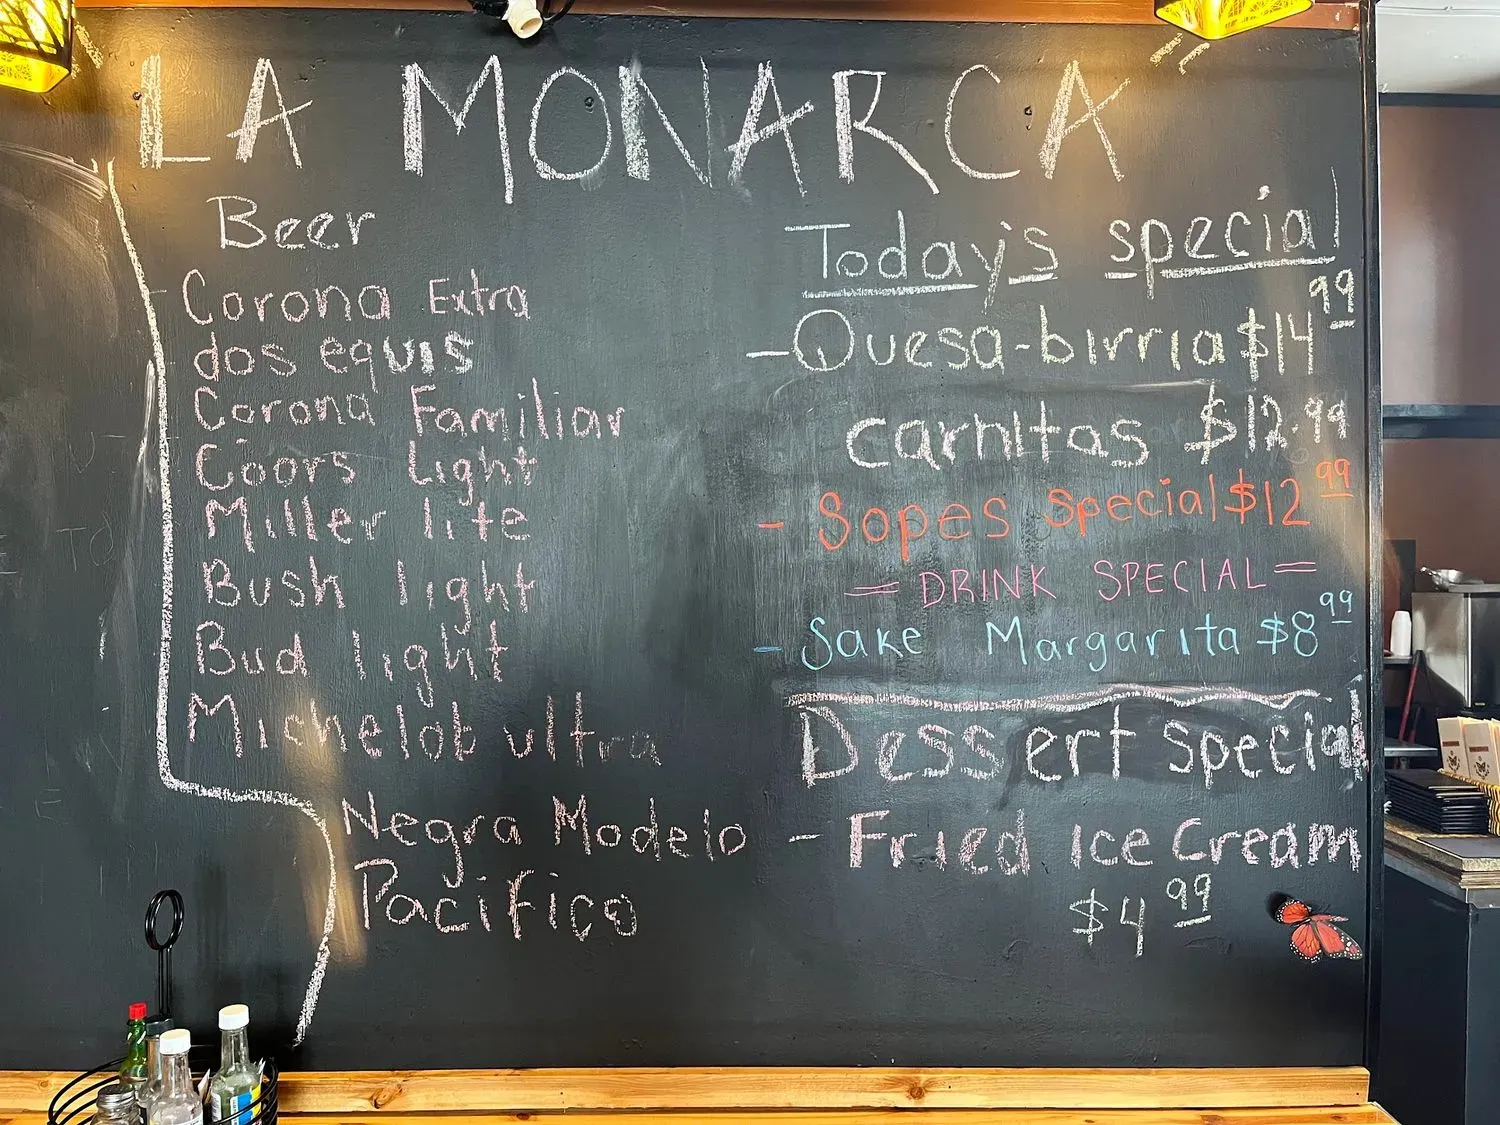 LA MONARCA"
Beer
Corona Extra
dos equis
Corona Familiar
Coors light
Miller lite
Bush light
Bud light
Michelob ultra
Negra Modelo
Pacifico
Today's special
-Quesa-birria $14 99
carnitas $12.99
- Sopes Special $12 99
= DRINK SPECIAL =
- Sake Margarita $8 99
Dessert special
- Fried Ice Cream
$4 99